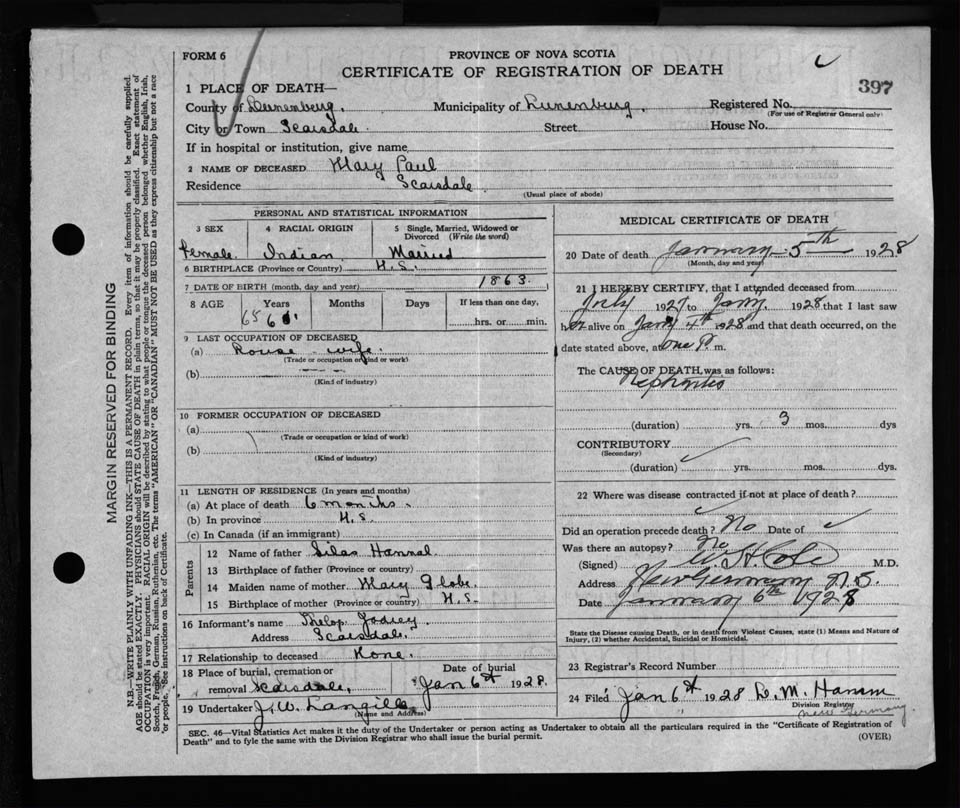 FORM 6
PROVINCE OF NOVA SCOTIA
CERTIFICATE OF REGISTRATION OF DEATH
397
1 PLACE OF DEATH—
County of Lunenburg. Municipality of Lunenburg. Registered No.
(For use of Registrar General only)
City or Town Scarsdale. Street House No.
If in hospital or institution, give name
2 NAME OF DECEASED Mary Paul
Residence Scarsdale
(Usual place of abode)
PERSONAL AND STATISTICAL INFORMATION
3 SEX 4 RACIAL ORIGIN 5 Single, Married, Widowed or Divorced (Write the word)
Female Indian Married
6 BIRTHPLACE (Province or Country) N.S.
7 DATE OF BIRTH (month, day and year) 1863.
8 AGE Years Months Days If less than one day,
65 hrs. or min.
9 LAST OCCUPATION OF DECEASED
(a) House wife.
(Trade or occupation or kind or work)
(b)
(Kind of industry)
10 FORMER OCCUPATION OF DECEASED
(a)
(Trade or occupation or kind of work)
(b)
(Kind of industry)
11 LENGTH OF RESIDENCE (In years and months)
(a) At place of death 6 months.
(b) In province N.S.
(c) In Canada (if an immigrant)
Parents
12 Name of father Silas Hannal
13 Birthplace of father (Province or country)
14 Maiden name of mother Mary Globe.
15 Birthplace of mother (Province or country) N.S.
16 Informant's name
Address Scarsdale.
17 Relationship to deceased None.
18 Place of burial, cremation or Date of burial
removal Scarsdale, Jan 6th 1928.
19 Undertaker J.W. Langille
(Name and Address)
MEDICAL CERTIFICATE OF DEATH
20 Date of death January 5th 1928
(Month, day and year)
21 I HEREBY CERTIFY, that I attended deceased from
July 1927 to Jany 1928 that I last saw
her alive on Jany 4th 1928 and that death occurred, on the
date stated above, at one P. m.
The CAUSE OF DEATH, was as follows:
Nephritis
(duration) yrs. 3 mos. dys
CONTRIBUTORY
(Secondary)
(duration) yrs. mos. dys.
22 Where was disease contracted if not at place of death?
Did an operation precede death? No Date of
Was there an autopsy? No
(Signed) W. H. Cole M.D.
Address New Germany N.S.
Date January 6th 1928
State the Disease causing Death, or in death from Violent Causes, state (1) Means and Nature of Injury, (2) whether Accidental, Suicidal or Homicidal.
23 Registrar's Record Number
24 Filed Jan 6th 1928 D. M. Hamm
Division Registrar
New Germany.
SEC. 46—Vital Statistics Act makes it the duty of the Undertaker or person acting as Undertaker to obtain all the particulars required in the "Certificate of Registration of
Death" and to fyle the same with the Division Registrar who shall issue the burial permit.
(OVER)
MARGIN RESERVED FOR BINDING
N.B.—WRITE PLAINLY WITH UNFADING INK—THIS IS A PERMANENT RECORD. Every item of information should be carefully supplied.
AGE should be stated EXACTLY. PHYSICIANS should STATE CAUSE OF DEATH in plain terms, so that it may be properly classified. Exact statement of
OCCUPATION is very important. RACIAL ORIGIN will be described by stating to what people or tongue the deceased person belonged whether English, Irish,
Scotch, French, German, Russian, Ruthenian, etc. The terms "AMERICAN" OR "CANADIAN" MUST NOT BE USED as they express citizenship but not a race
or people. See instructions on back of Certificate.